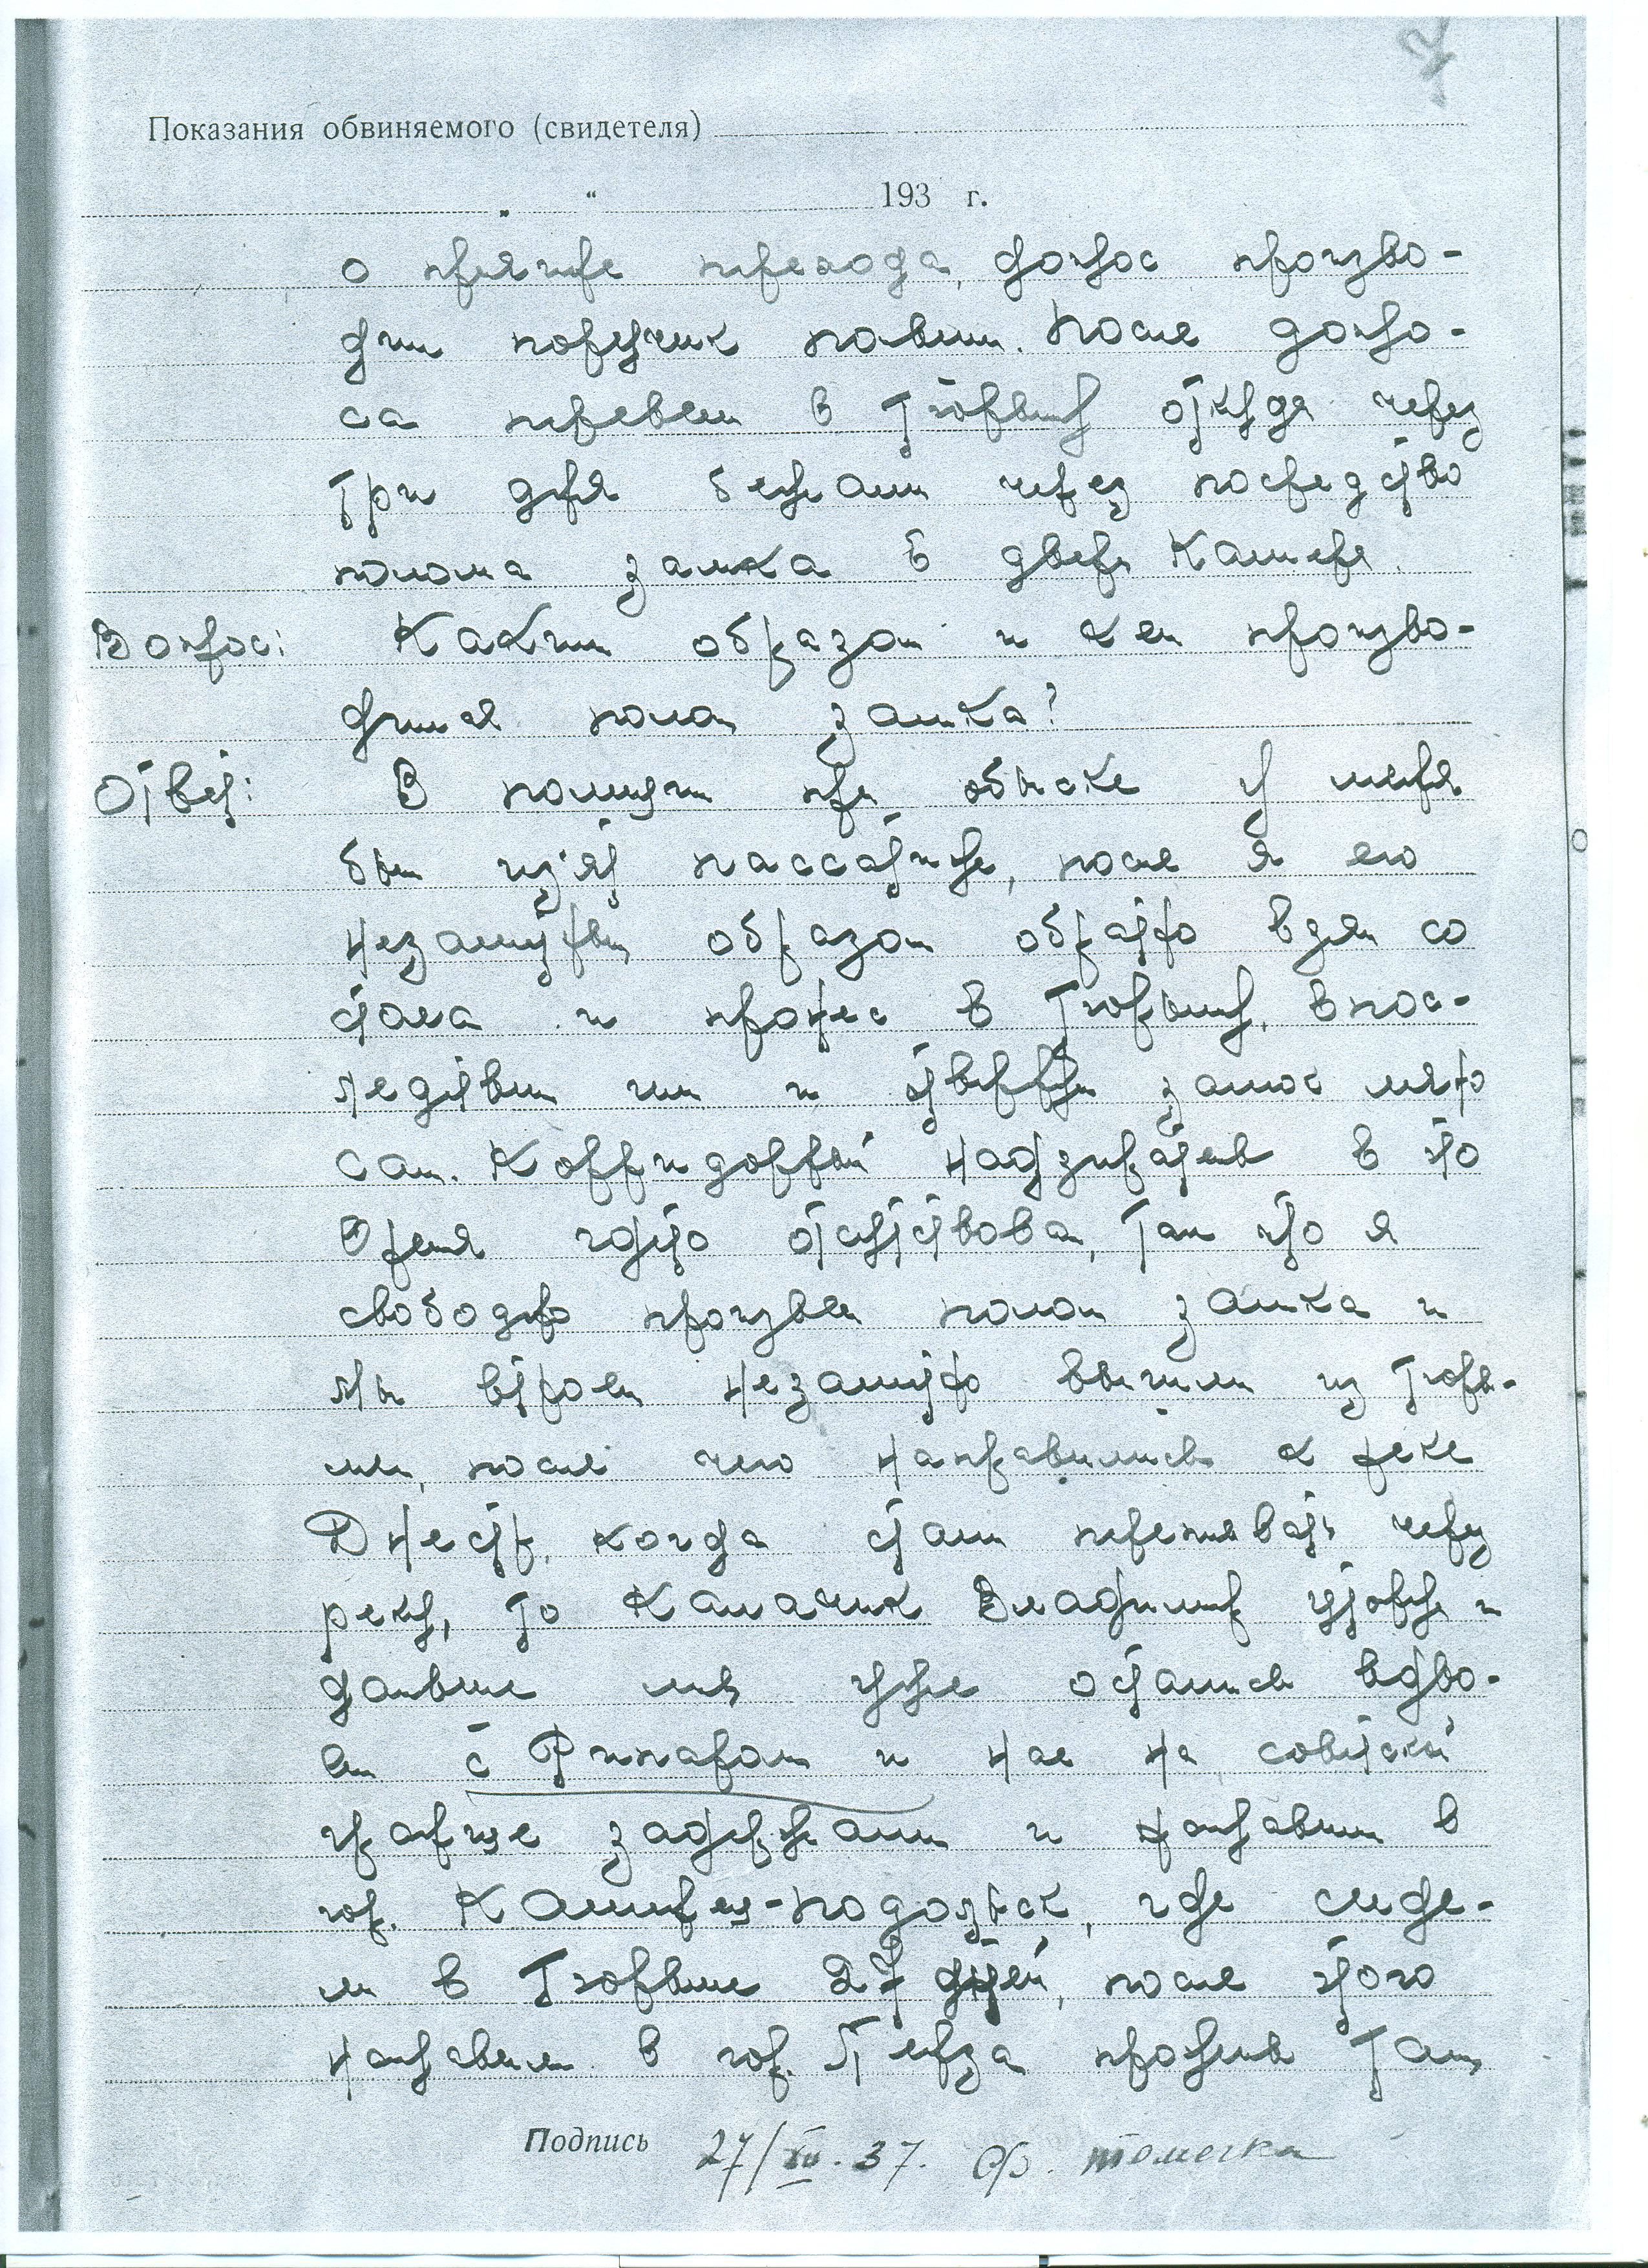 7
Показания обвиняемого (свидетеля)
„ “ 193 г.
о причине перехода, допрос произво-
дил поручик полиции. После допро-
са перевели в тюрьму откуда через
три дня бежали через посредство
полома замка в двери камеры.
Вопрос: Каким образом и кем произво-
дился полом замка?
Ответ: В полиции при обыске у меня
был изъят пассатиже, после я его
незаметным образом обратно взял со
стола и пронес в тюрьму, впос-
ледствии им и отвернул замок лично
сам. Коридорный надзиратель в это
время где-то отсутствовал, так что я
свободно произвел полом замка и
мы втроем незаметно вышли из тюрь-
мы, после чего направились к реке
Днестр, когда стали переплывать через
реку, то Калачик Владимир утонул и
дальше мы уже остались вдво-
ем с Рипаром и нас на советской
границе задержали и направили в
гор. Каменец-подольск, где сиде-
ли в тюрьме 27 дней, после этого
направили в гор. Пенза прожив там
Подпись 27/XII.37. Фр. томечка